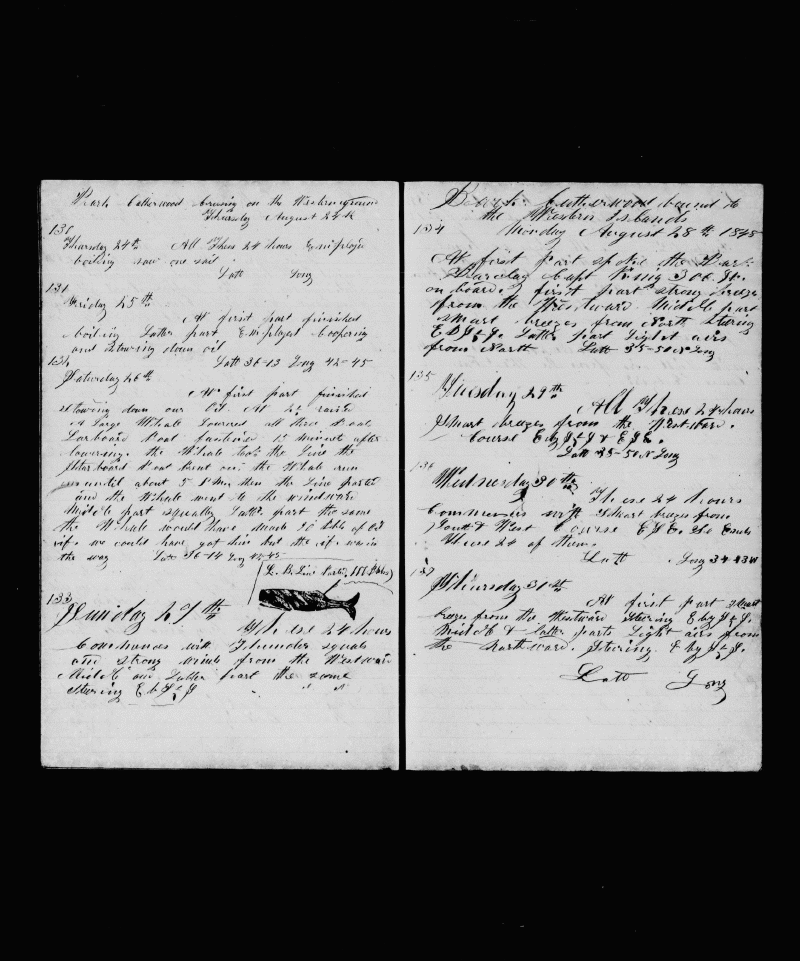 Bark Catherwood Cruising on the Western ground
Thursday August 24th
130
Thursday 24th All These 24 hours Employed
boiling saw one sail
Latt Long
131
Friday 25th
At first part finished
boiling Latter part Employed Coopering
and Stowing down oil
Latt 36-13 Long 42-45
132
Saturday 26th
At first part finished
stowing down our Oil At 2 raised
A Large Whale Lowered all three Boats
Larboard Boat fastened 15 minuets after
lowering the Whale took the Line the
Starboard Boat bent on the Whale run
untill about 5 PM then the Line parted
and the Whale went to the windward
Middle part squally Latter part the same
the Whale would have made Bbls of Oil
if we could have got him but the if was in
the way Latt 36-14 Long 42-45
L. B. Line Parted
133
Sunday 27th
These 24 hours
Commences with Thunder squals
and strong winds from the Westward
Middle and Latter part the same
Stering E by S 1/2 S
Bark Catherwood bound to
the Western Islands
134 Monday August 28th 1848
At first part spoke the Bark
Barclay Capt
on board. first part strong breeze
from the Westward Middle part
smart breezes from North Stering
Latter part Light airs
from North Latt 35-50 N Long
135
Tuesday 29th
All These 24 hours
Smart breezes from the Westward.
Course
Latt 35-50 N Long
136
Wednesday 30th
These 24 hours
Commences with Smart breezes from
South & West Course ESE
These 24 of them.
Latt Long 34-43 W
137
Thursday 31st
At first part smart
breezes from the Westward Stering E by S 1/2 S.
Middle & Latter parts Light airs from
the Northward. Stering E by S 1/2 S.
Latt Long